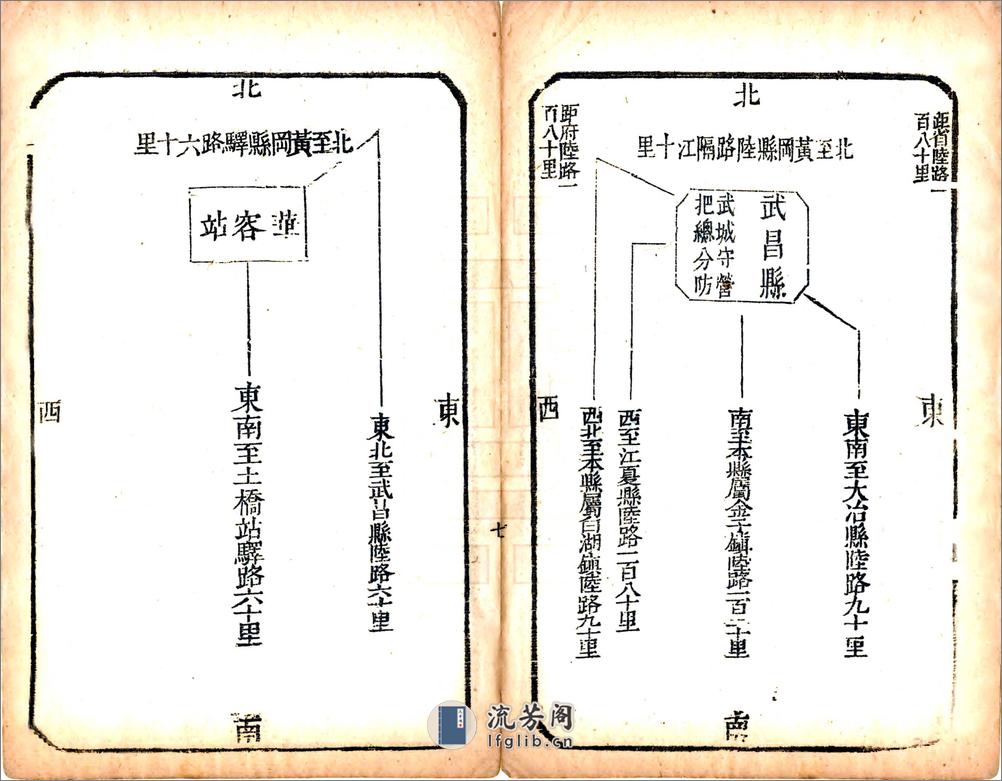 北
距省陸路一
百八十里
北至黃岡縣陸路隔江十里
距府陸路一
百八十里
武昌縣
武城守營
把總分防
東
西
東南至大冶縣陸路九十里
南至本縣屬金子鎮陸路一百二十里
西至江夏縣陸路一百八十里
西北至本縣屬白湖鎮陸路九十里
南
七
北
北至黃岡縣驛路六十里
華容站
東
西
東北至武昌縣陸路六十里
東南至土橋站驛路六十里
南
流芳阁
lfglib.cn